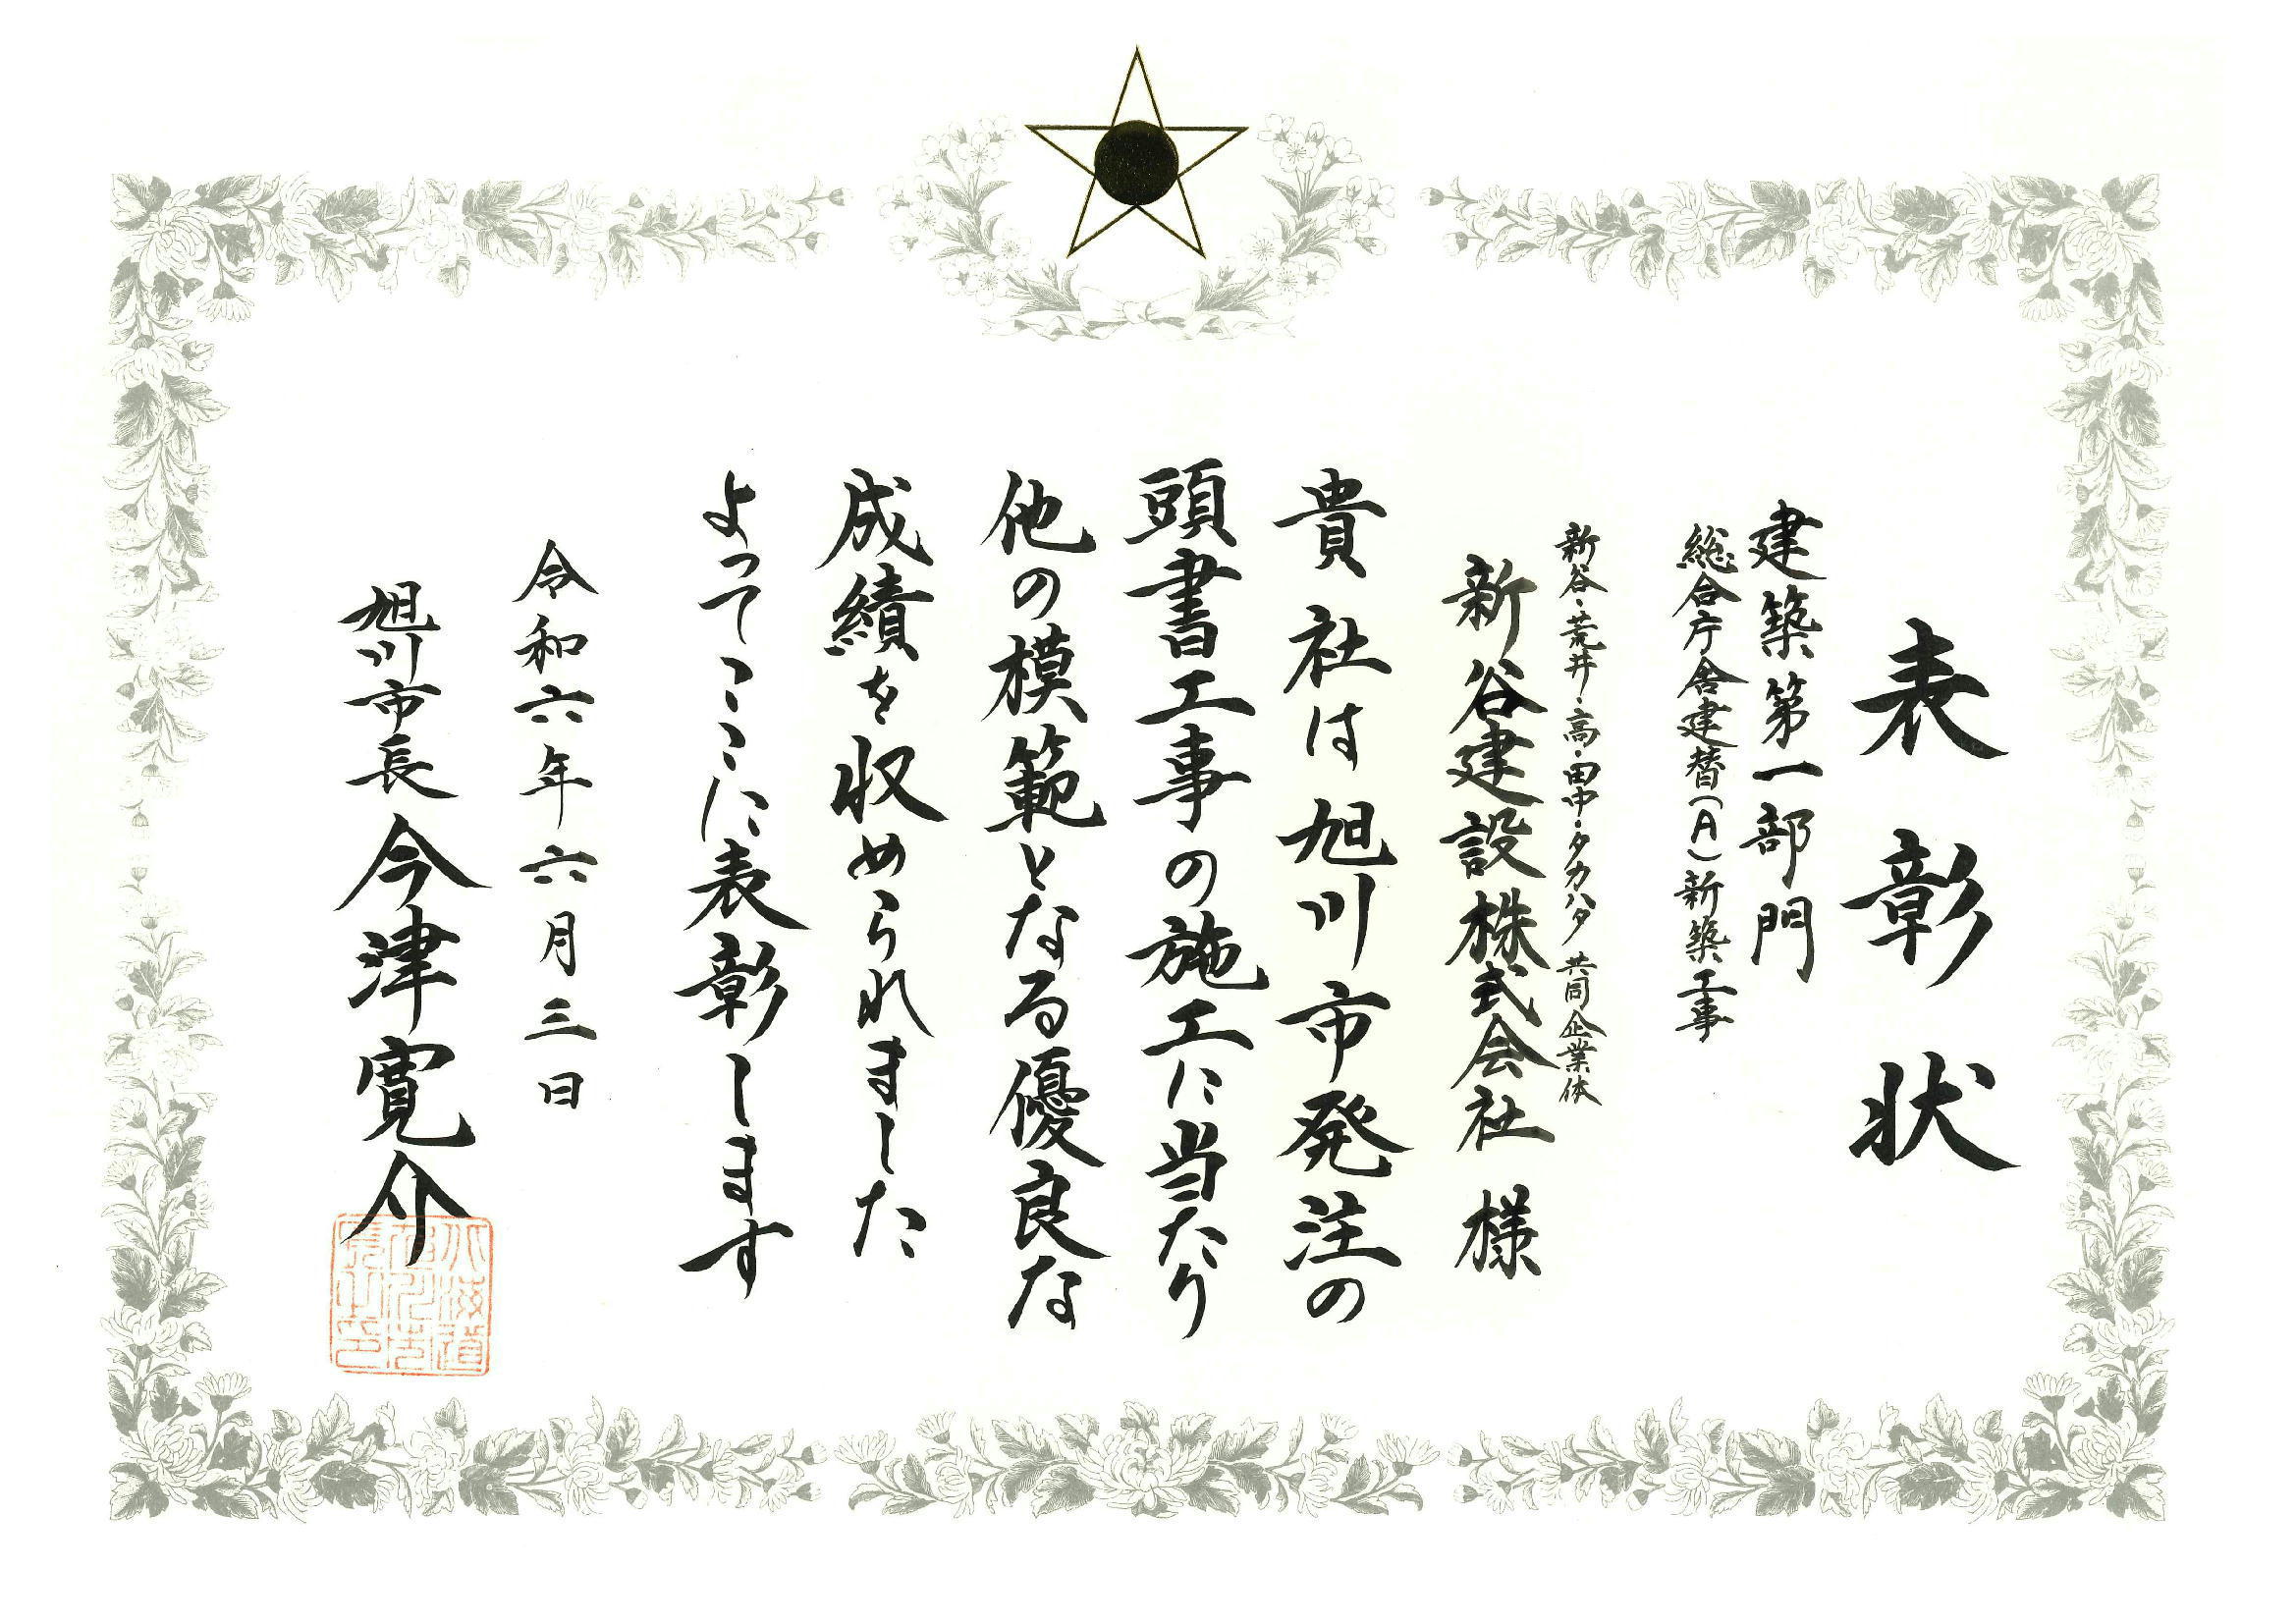 表彰状
建築第一部門
総合庁舎建替(A)新築工事
新谷・荒井・高・田中・タカハタ 共同企業体
新谷建設株式会社 様
貴社は旭川市発注の
頭書工事の施工に当たり
他の模範となる優良な
成績を収められました
よってここに表彰します
令和六年六月三日
旭川市長 今津寛介
北海道
旭川市
長之印